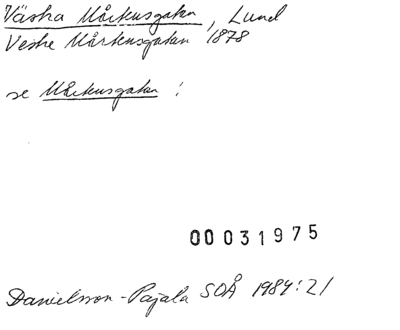 Västra Mårtensgatan, Lund
Vestre Mårtensgatan 1878
se Mårtensgatan !
00 031975
Danielsson-Pajala SOÅ 1984:21